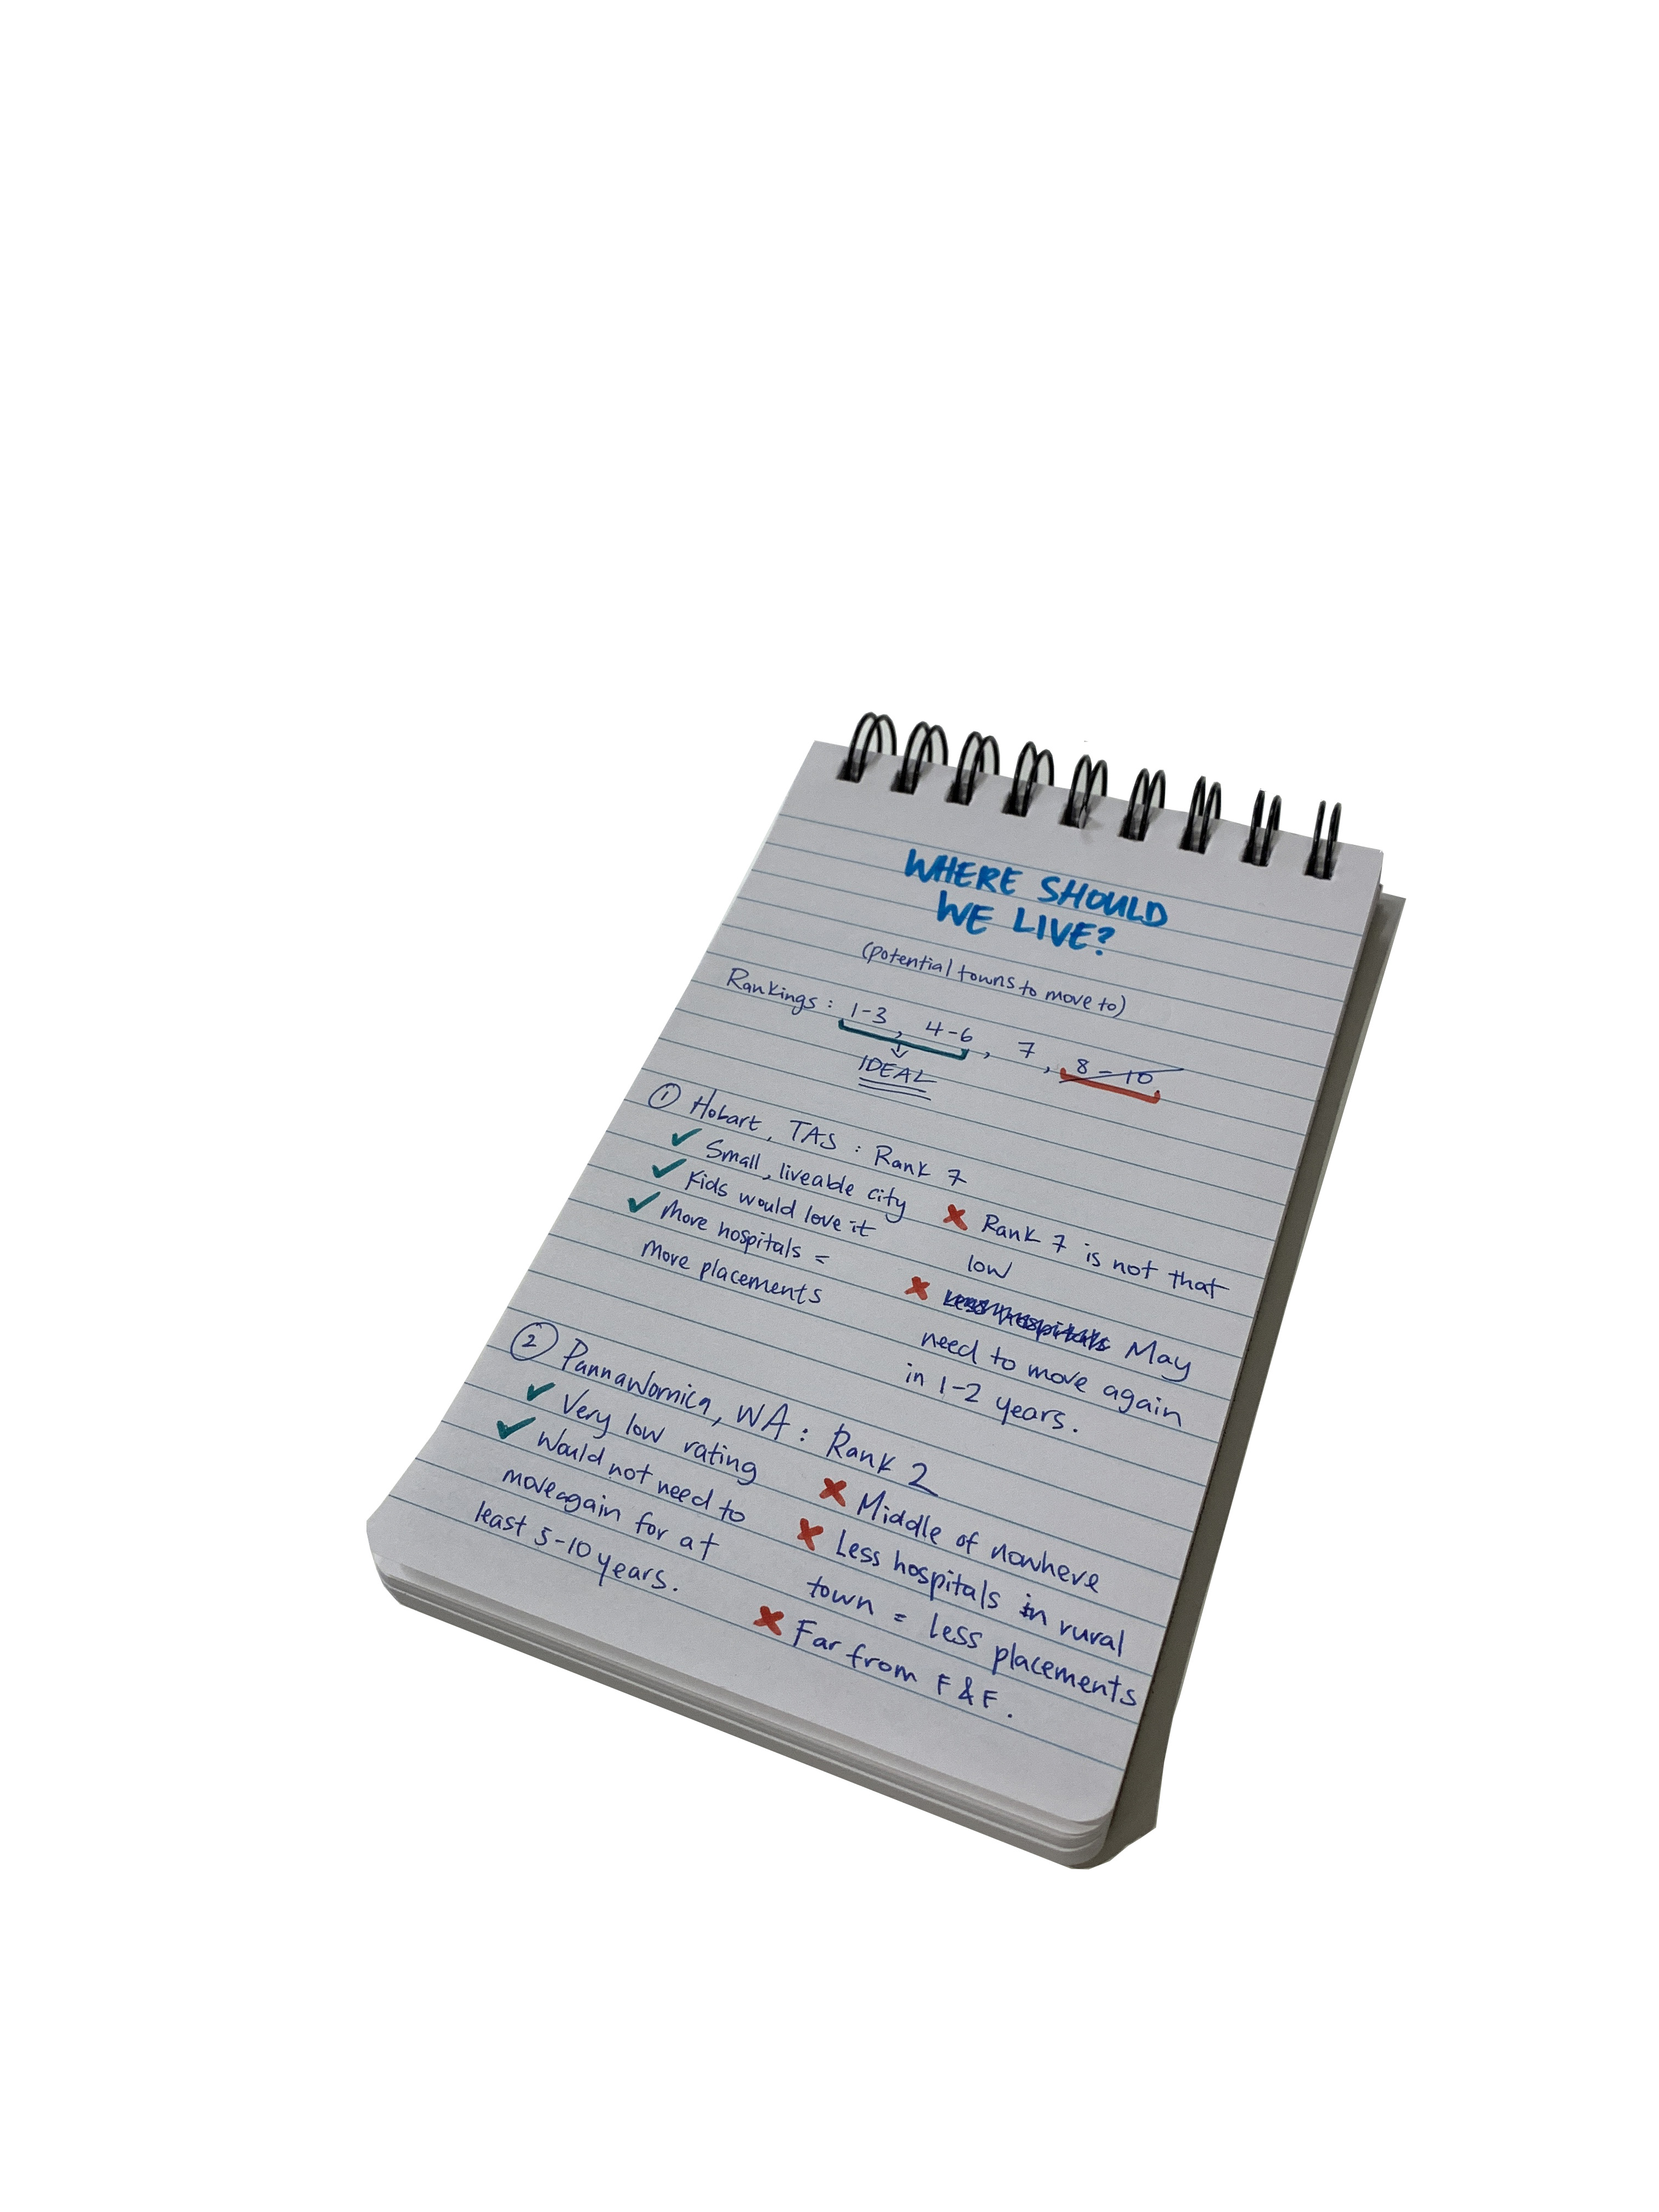 WHERE SHOULD
WE LIVE?
(potential towns to move to)
Rankings: 1-3, 4-6, 7, 8-10
IDEAL
① Hobart, TAS: Rank 7
Small, liveable city
Kids would love it
More hospitals =
more placements
Rank 7 is not that
low
Less hospitals May
need to move again
in 1-2 years.
② Pannawornica, WA: Rank 2
Very low rating
Would not need to
move again for at
least 5-10 years.
Middle of nowhere
Less hospitals in rural
town = less placements
Far from F & F.